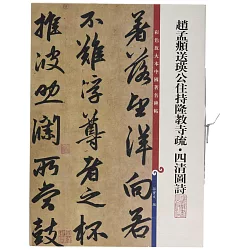 趙孟頫送瑛公住持隆教寺疏·四清圖詩
彩色放大本中國著名碑帖
著落望洋向若
不難浮尊者之杯
推波助瀾所當鼓